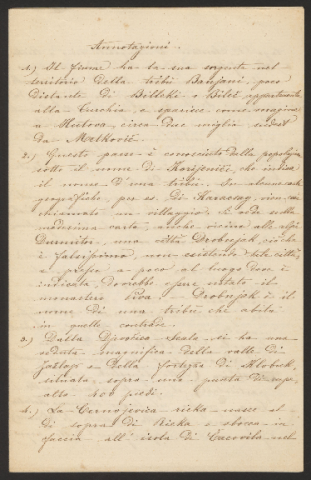 Annotazioni.
1.) Il fiume ha la sua sorgente nel
territorio della tribù Banjani, poco
distante di Billeki e Bileć appartenente
alla Turchia, e sparisce
a Hutova circa due miglia sudest
da Metković.
2.) Questo paese è conosciuto dalla popolazione
sotto il nome di che indica
il nome d'una tribù. In alcune carte
geografiche, per es. di Karacsay, vien
chiamato un villaggio. Si vede sulla
medesima carta, anche vicino alle alpi
Durmitor, una città Drobnjak, ciò che
è falsissimo, non esistendo tale città,
e presso a poco al luogo dove è
indicata, dovrebbe essere notato il
monastero Drobnjak è il
nome di una tribù che abita
in quelle contrade.
3.) Dalla Scala, si ha una
veduta magnifica della valle di
e della fortezza di Klobuk,
situata sopra una punta di rupe
alta 400 piedi.
4.) La Cernojevica rieka nasce al
di sopra di Rieka e sbocca in
faccia all' isola di nel